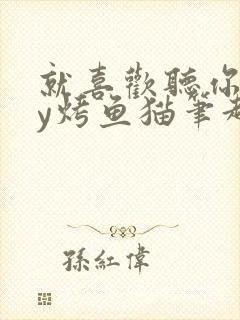 就喜歡聽你
y烤鱼猫筆趣
孫紅偉